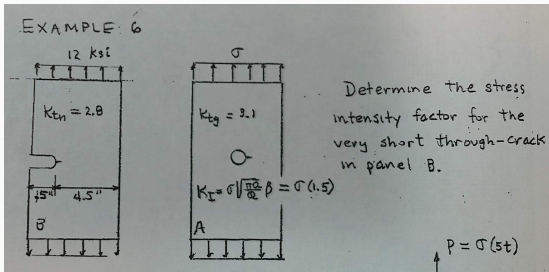 EXAMPLE 6
12 ksi
Ktn = 2.8
.5"
4.5"
B
σ
Ktg = 3.1
KI = σ√(πa/Q) β = σ(1.5)
A
Determine the stress
intensity factor for the
very short through-crack
in panel B.
P = σ(5t)